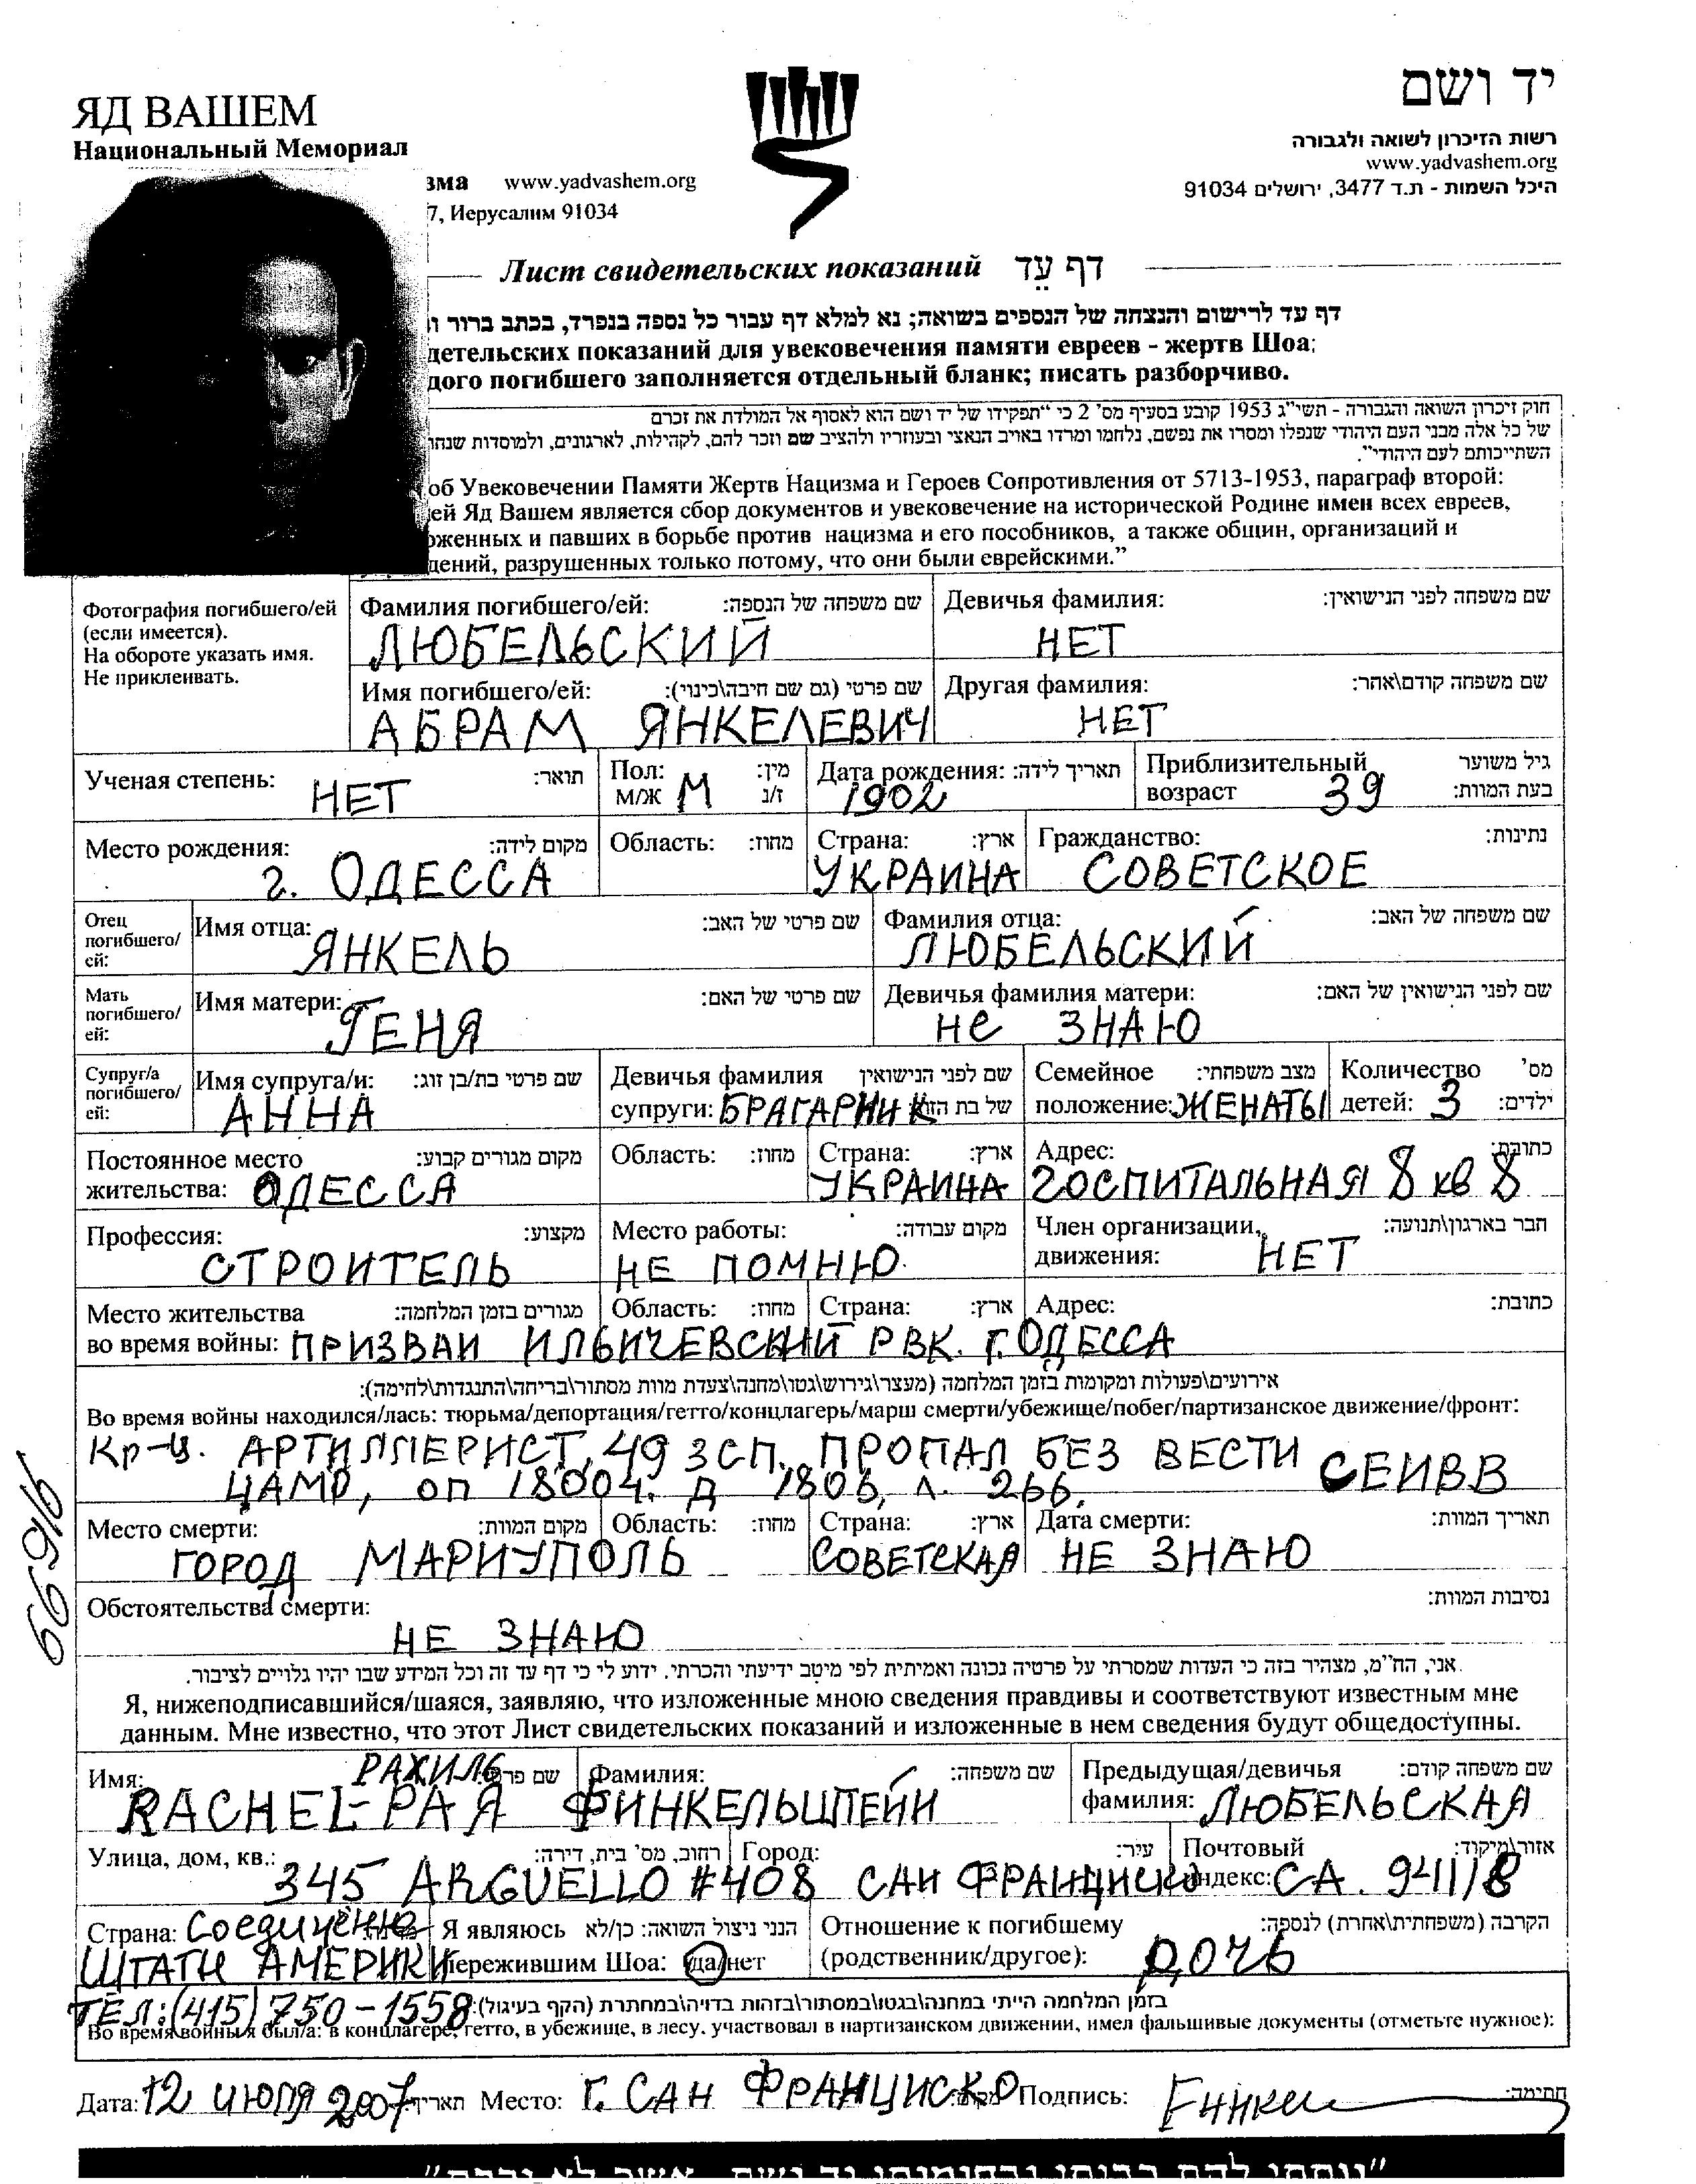 ЯД ВАШЕМ
Национальный Мемориал
יד ושם
רשות הזיכרון לשואה ולגבורה
www.yadvashem.org
היכל השמות - ת.ד 3477, ירושלים 91034
зма www.yadvashem.org
7, Иерусалим 91034
Лист свидетельских показаний דף עֵד
דף עד לרישום והנצחה של הנספים בשואה; נא למלא דף עבור כל נספה בנפרד, בכתב ברור ו
детельских показаний для увековечения памяти евреев - жертв Шоа;
дого погибшего заполняется отдельный бланк; писать разборчиво.
חוק זיכרון השואה והגבורה - תשי"ג 1953 קובע בסעיף מס' 2 כי "תפקידו של יד ושם הוא לאסוף אל המולדת את זכרם
של כל אלה מבני העם היהודי שנפלו ומסרו את נפשם, נלחמו ומרדו באויב הנאצי ובעוזריו ולהציב שם וזכר להם, לקהילות, לארגונים, ולמוסדות שנחר
השתייכותם לעם היהודי".
об Увековечении Памяти Жертв Нацизма и Героев Сопротивления от 5713-1953, параграф второй:
ей Яд Вашем является сбор документов и увековечение на исторической Родине имен всех евреев,
оженных и павших в борьбе против нацизма и его пособников, а также общин, организаций и
дений, разрушенных только потому, что они были еврейскими."
Фотография погибшего/ей
(если имеется).
На обороте указать имя.
Не приклеивать.
Фамилия погибшего/ей: שם משפחה של הנספה:
ЛЮБЕЛЬСКИЙ
Девичья фамилия: שם משפחה לפני הנישואין:
НЕТ
Имя погибшего/ей: שם פרטי (גם שם חיבה\כינוי):
АБРАМ ЯНКЕЛЕВИЧ
Другая фамилия: שם משפחה קודם\אחר:
НЕТ
Ученая степень: תואר:
НЕТ
Пол: מין:
М/Ж М ז/נ
Дата рождения: תאריך לידה:
1902
Приблизительный גיל משוער
возраст 39 בעת המוות:
Место рождения: מקום לידה:
г. ОДЕССА
Область: מחוז:
Страна: ארץ:
УКРАИНА
Гражданство: נתינות:
СОВЕТСКОЕ
Отец
погибшего/
ей:
Имя отца: שם פרטי של האב:
ЯНКЕЛЬ
Фамилия отца: שם משפחה של האב:
ЛЮБЕЛЬСКИЙ
Мать
погибшего/
ей:
Имя матери: שם פרטי של האם:
ГЕНЯ
Девичья фамилия матери: שם לפני הנישואין של האם:
не ЗНАЮ
Супруг/а
погибшего/
ей:
Имя супруга/и: שם פרטי בת/בן זוג:
АННА
Девичья фамилия שם לפני הנישואין
супруги: БРАГАРНИК של בת הזוג
Семейное מצב משפחתי:
положение: ЖЕНАТЫ
Количество מס'
детей: 3 ילדים:
Постоянное место מקום מגורים קבוע:
жительства: ОДЕССА
Область: מחוז:
Страна: ארץ:
УКРАИНА
Адрес: כתובת:
ГОСПИТАЛЬНАЯ 8 кв 8
Профессия: מקצוע:
СТРОИТЕЛЬ
Место работы: מקום עבודה:
НЕ ПОМНЮ.
Член организации, חבר בארגון\תנועה:
движения: НЕТ
Место жительства מגורים בזמן המלחמה: Область: מחוז: Страна: ארץ: Адрес: כתובת:
во время войны: ПРИЗВАН ИЛЬИЧЕВСКИЙ РВК. Г. ОДЕССА
אירועים\פעולות ומקומות בזמן המלחמה (מעצר\גירוש\גטו\מחנה\צעדת מוות מסתור\בריחה\התנגדות\לחימה):
Во время войны находился/лась: тюрьма/депортация/гетто/концлагерь/марш смерти/убежище/побег/партизанское движение/фронт:
Кр-ц. АРТИЛЛЕРИСТ, 49 ЗСП. ПРОПАЛ БЕЗ ВЕСТИ СЕИВВ
ЦАМО, оп 18004. Д 1806, л. 266.
66916
Место смерти: מקום המוות: Область: מחוז:
ГОРОД МАРИУПОЛЬ
Страна: ארץ:
СОВЕТСКАЯ
Дата смерти: תאריך המוות:
НЕ ЗНАЮ
Обстоятельства смерти: נסיבות המוות:
НЕ ЗНАЮ
אני, הח"מ, מצהיר בזה כי העדות שמסרתי על פרטיה נכונה ואמיתית לפי מיטב ידיעתי והכרתי. ידוע לי כי דף עד זה וכל המידע שבו יהיו גלויים לציבור.
Я, нижеподписавшийся/шаяся, заявляю, что изложенные мною сведения правдивы и соответствуют известным мне
данным. Мне известно, что этот Лист свидетельских показаний и изложенные в нем сведения будут общедоступны.
Имя: РАХИЛЬ שם פרטי:
RACHEL-РАЯ
Фамилия: שם משפחה:
ФИНКЕЛЬШТЕЙН
Предыдущая/девичья שם משפחה קודם:
фамилия: ЛЮБЕЛЬСКАЯ
Улица, дом, кв.: רחוב, מס' בית, דירה:
345 ARGUELLO #408
Город: עיר:
САН ФРАНЦИСКО
Почтовый אזור\מיקוד:
индекс: CA. 94118
Страна: Соединённые
ШТАТЫ АМЕРИКИ
Я являюсь הנני ניצול השואה: כן/לא
пережившим Шоа: да/нет
Отношение к погибшему הקרבה (משפחתית\אחרת) לנספה:
(родственник/другое): ДОЧЬ
ТЕЛ: (415) 750-1558 בזמן המלחמה הייתי במחנה\בגטו\במסתור\בזהות בדויה\במחתרת (הקף בעיגול):
Во время войны я был/а: в концлагере, гетто, в убежище, в лесу, участвовал в партизанском движении, имел фальшивые документы (отметьте нужное):
Дата: 12 июля 2007 תאריך Место: Г. САН ФРАНЦИСКО Подпись: חתימה: